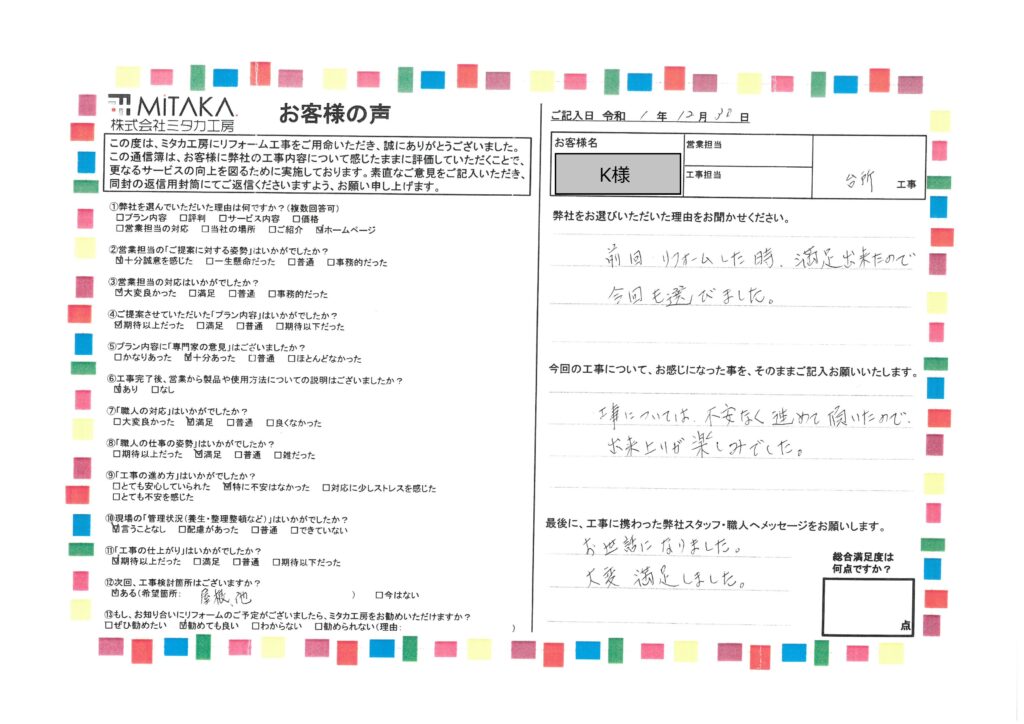 MiTAKA
株式会社ミタカ工房
お客様の声
この度は、ミタカ工房にリフォーム工事をご用命いただき、誠にありがとうございました。
この通信簿は、お客様に弊社の工事内容について感じたままに評価していただくことで、
更なるサービスの向上を図るために実施しております。素直なご意見をご記入いただき、
同封の返信用封筒にてご返信くださいますよう、お願い申し上げます。
①弊社を選んでいただいた理由は何ですか？(複数回答可)
□プラン内容 □評判 □サービス内容 □価格
□営業担当の対応 □当社の場所 □ご紹介 ☑ホームページ
②営業担当の「ご提案に対する姿勢」はいかがでしたか？
☑十分誠意を感じた □一生懸命だった □普通 □事務的だった
③営業担当の対応はいかがでしたか？
☑大変良かった □満足 □普通 □事務的だった
④ご提案させていただいた「プラン内容」はいかがでしたか？
☑期待以上だった □満足 □普通 □期待以下だった
⑤プラン内容に「専門家の意見」はございましたか？
□かなりあった ☑十分あった □普通 □ほとんどなかった
⑥工事完了後、営業から製品や使用方法についての説明はございましたか？
☑あり □なし
⑦「職人の対応」はいかがでしたか？
□大変良かった ☑満足 □普通 □良くなかった
⑧「職人の仕事の姿勢」はいかがでしたか？
□期待以上だった ☑満足 □普通 □雑だった
⑨「工事の進め方」はいかがでしたか？
□とても安心していられた ☑特に不安はなかった □対応に少しストレスを感じた
□とても不安を感じた
⑩現場の「管理状況(養生・整理整頓など)」はいかがでしたか？
☑言うことなし □配慮があった □普通 □できていない
⑪「工事の仕上がり」はいかがでしたか？
☑期待以上だった □満足 □普通 □期待以下だった
⑫次回、工事検討箇所はございますか？
☑ある(希望箇所: 屋根、他 ) □今はない
⑬もし、お知り合いにリフォームのご予定がございましたら、ミタカ工房をお勧めいただけますか？
□ぜひ勧めたい ☑勧めても良い □わからない □勧められない(理由: )
ご記入日 令和 1 年 12 月 30 日
お客様名
K様
営業担当
工事担当
台所 工事
弊社をお選びいただいた理由をお聞かせください。
前回リフォームした時、満足出来たので
今回も選びました。
今回の工事について、お感じになった事を、そのままご記入お願いいたします。
工事については、不安なく進めて頂いたので、
出来上りが楽しみでした。
最後に、工事に携わった弊社スタッフ・職人へメッセージをお願いします。
お世話になりました。
大変満足しました。
総合満足度は
何点ですか？
点